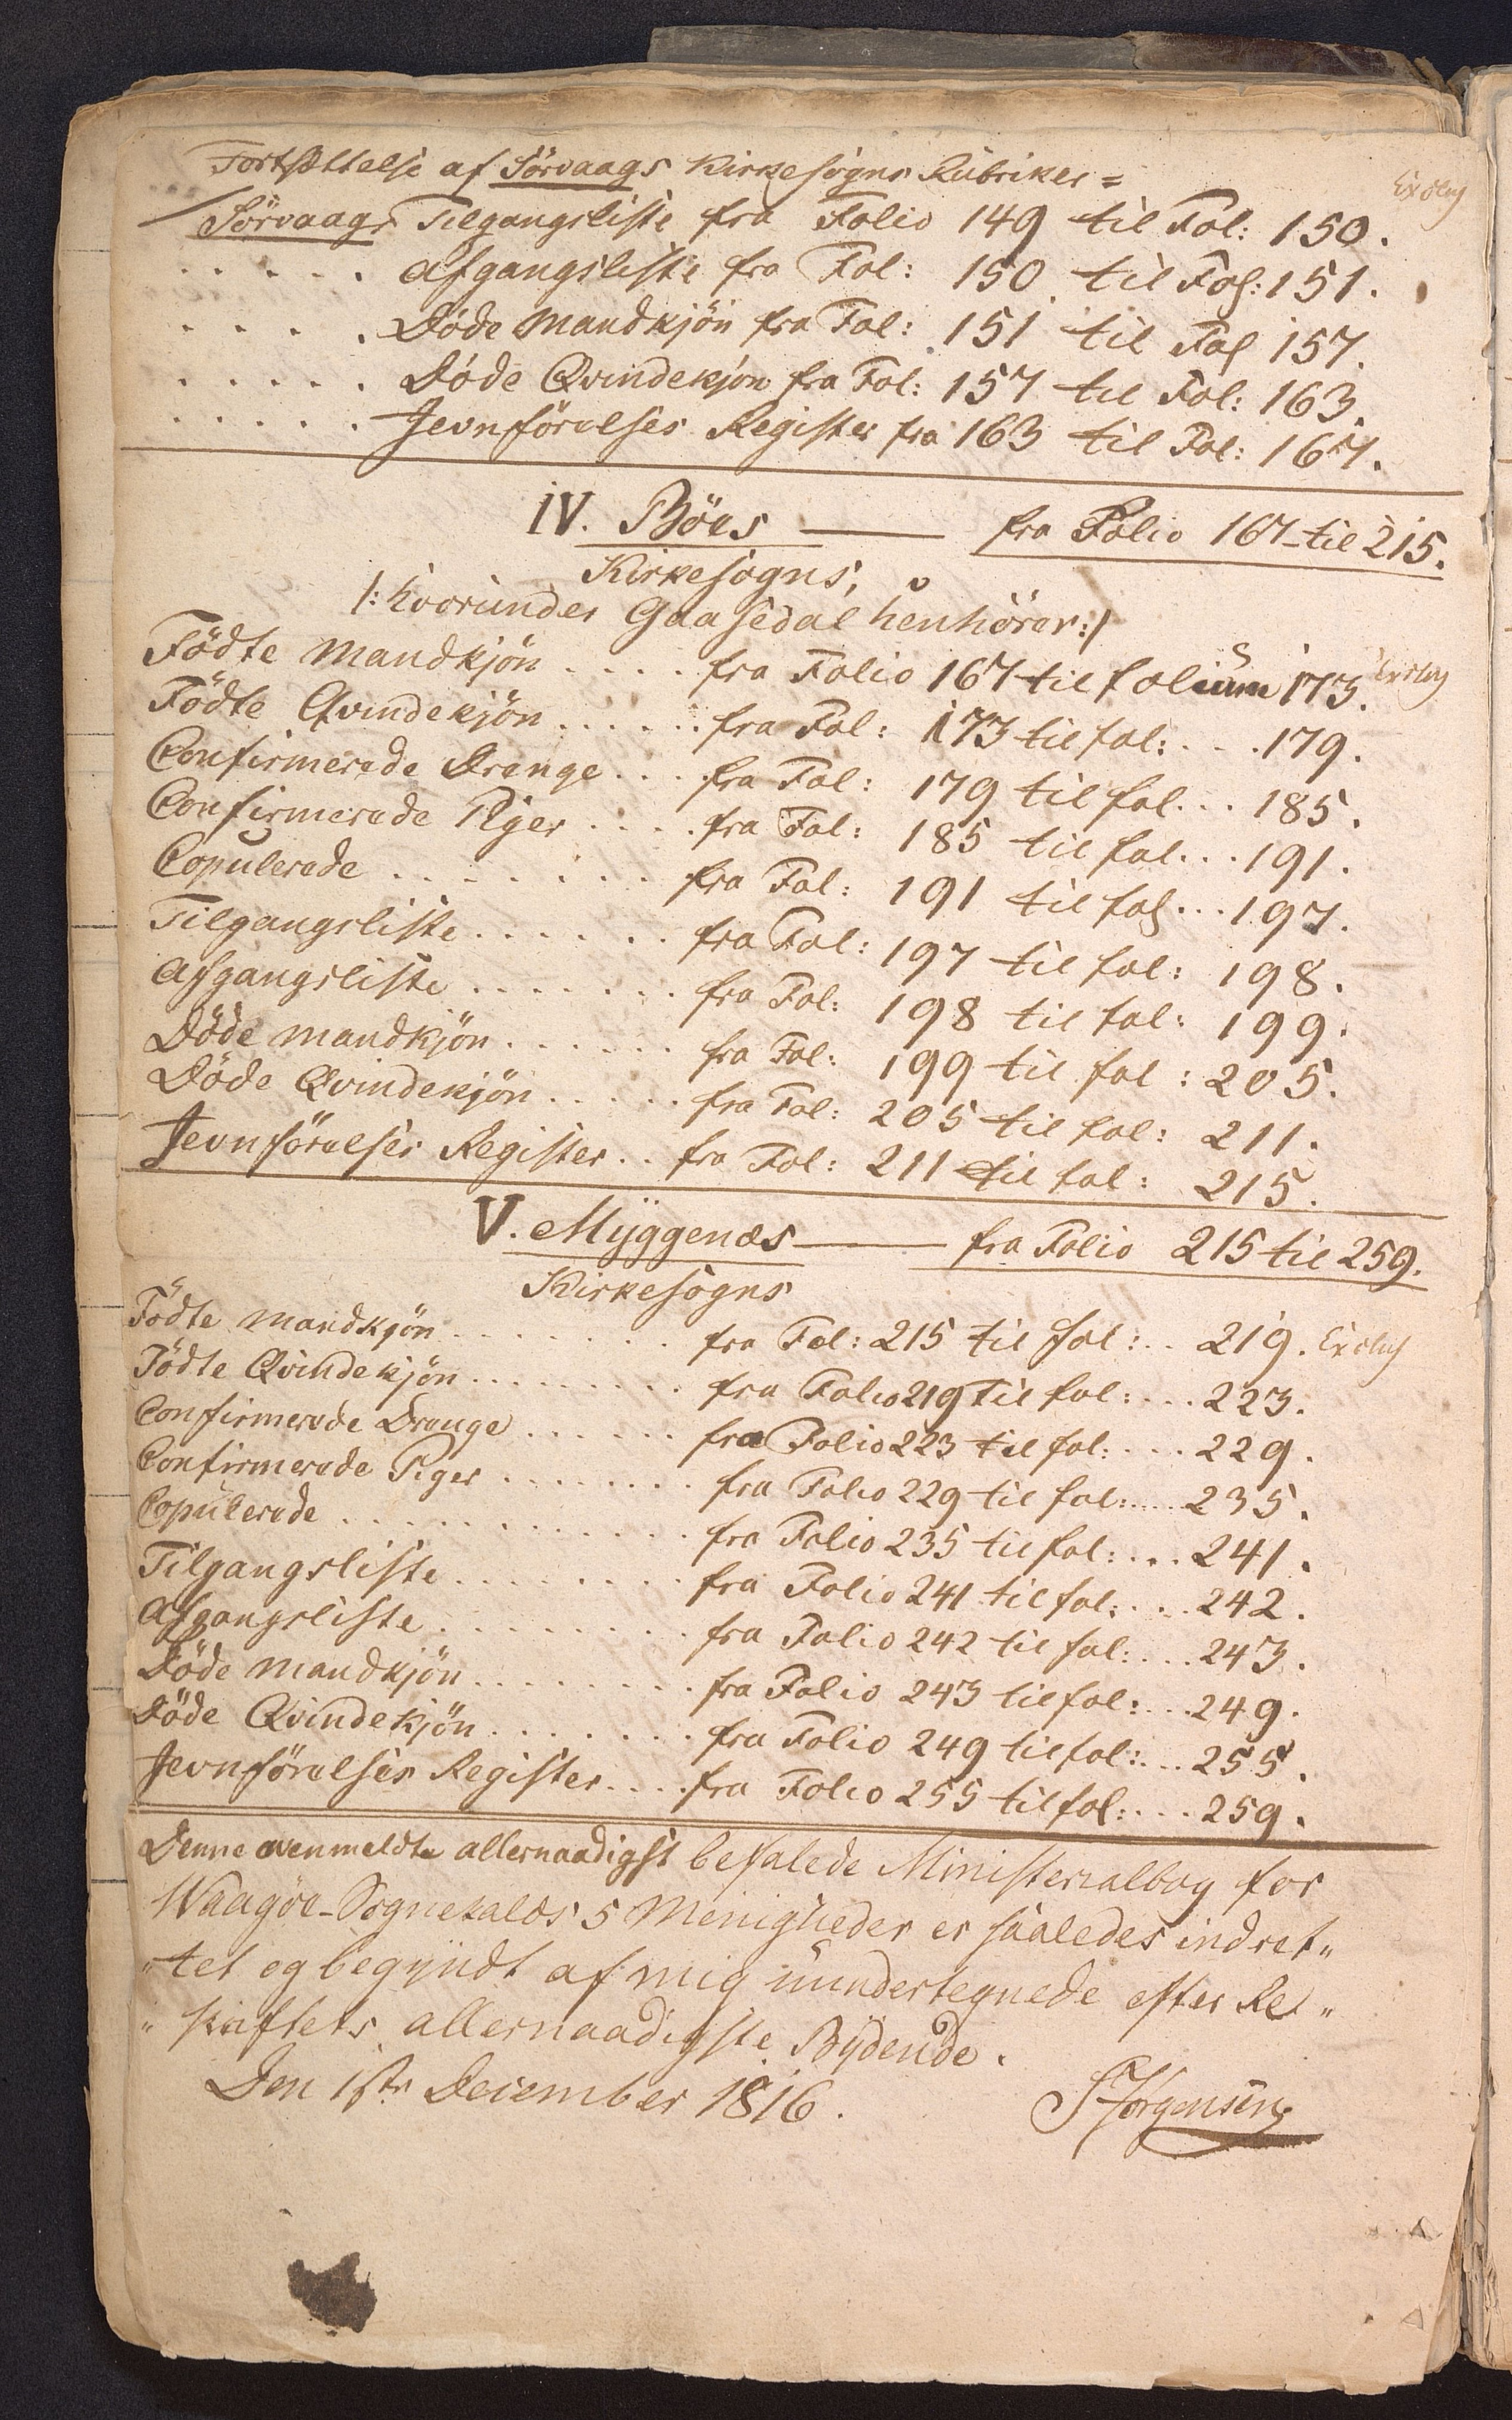 Fortsættelse af Sörvaags Kirkesogns Rubriker =
Exclus
Sörvaags Tilgangsliste fra Folio 149 til Fol: 150.
. . . . . Afgangsliste fra Fol: 150 til Fol: 151.
. . . . . Döde Mandkjön fra Fol: 151 til Fol 157.
. . . . . Döde Qvindekjön fra Fol: 157 til Fol: 163.
. . . . . Jevnförelses Register fra 163 til Fol: 167.
IV. Böes — fra Folio 167 til 215.
Kirkesogns,
/: hvorunder Gaasedal henhörer :/
Födte Mandkjön .... fra Folio 167 til folium 173. Exclus
Födte Qvindekjön ...... fra Fol: 173 til fol: ... 179.
Confirmerede Drenge ... fra Fol: 179 til fol... 185.
Confirmerede Piger .... fra Fol: 185 til fol... 191.
Copulerede ........ fra Fol: 191 til fol... 197.
Tilgangsliste ...... fra Fol: 197 til fol: 198.
Afgangsliste ....... fra Fol: 198 til fol: 199.
Döde Mandkjön ...... fra Fol: 199 til fol: 205.
Döde Qvindekjön ..... fra Fol: 205 til fol: 211.
Jevnförelses Register .. fra Fol: 211 til fol: 215.
V. Myggenæs — fra Folio 215 til 259.
Kirkesogns
Födte Mandkjön ........ fra Fol: 215 til fol: .. 219. Exclus
Födte Qvindekjön ........ fra Folio 219 til fol: ... 223.
Confirmerede Drenge ...... fra Folio 223 til fol: ... 229.
Confirmerede Piger ....... fra Folio 229 til fol: .... 235.
Copulerede ............ fra Folio 235 til fol: ... 241.
Tilgangsliste ........ fra Folio 241 til fol: ... 242.
Afgangsliste ......... fra Folio 242 til fol: ... 243.
Döde Mandkjön ........ fra Folio 243 til fol: ... 249.
Döde Qvindekjön ....... fra Folio 249 til fol: ... 255.
Jevnförelses Register .... fra Folio 255 til fol: ... 259.
Denne ovenmeldte allernaadigst befalede Ministerialbog for
Waagöe-Sognekalds 5 Menigheder er saaledes indret„
„tet og begyndt af mig uundertegnede efter Re„
„skriftets allernaadigste Bydende.
Den 1ste December 1816. Jörgensen